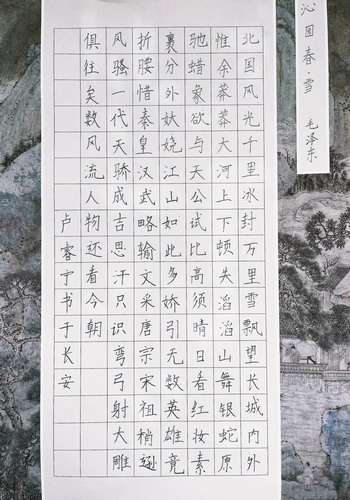 沁园春·雪 毛泽东
北国风光千里冰封万里雪飘望长城内外
惟余莽莽大河上下顿失滔滔山舞银蛇原
驰蜡象欲与天公试比高须晴日看红妆素
裹分外妖娆江山如此多娇引无数英雄竟
折腰惜秦皇汉武略输文采唐宗宋祖稍逊
风骚一代天骄成吉思汗只识弯弓射大雕
俱往矣数风流人物还看今朝
卢睿宁书于长安